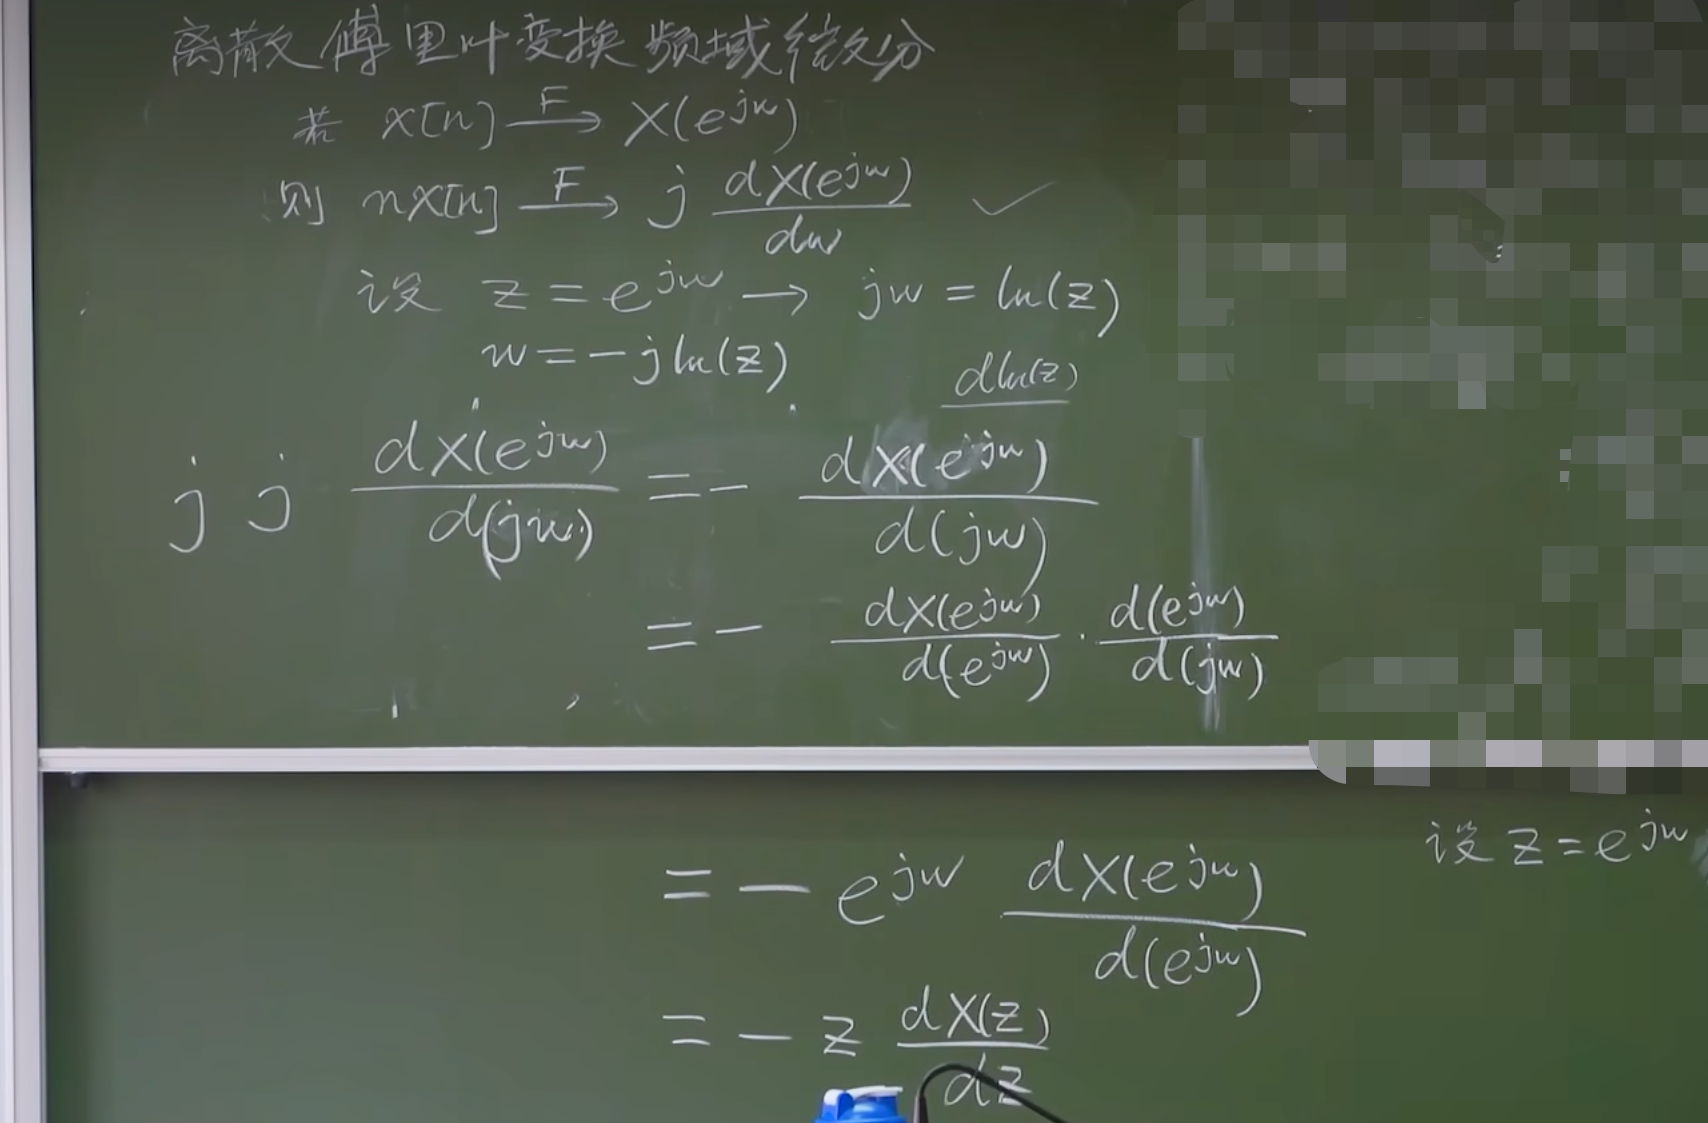 离散傅里叶变换频域微分
若 x[n] —F→ X(e^{jw})
则 nx[n] —F→ j dX(e^{jw})/dw ✓
设 z = e^{jw} → jw = ln(z)
w = -j ln(z)
dln(z)
j j dX(e^{jw})/d(jw) = - dX(e^{jw})/d(jw)
= - dX(e^{jw})/d(e^{jw}) · d(e^{jw})/d(jw)
设 z = e^{jw}
= - e^{jw} dX(e^{jw})/d(e^{jw})
= - z dX(z)/dz